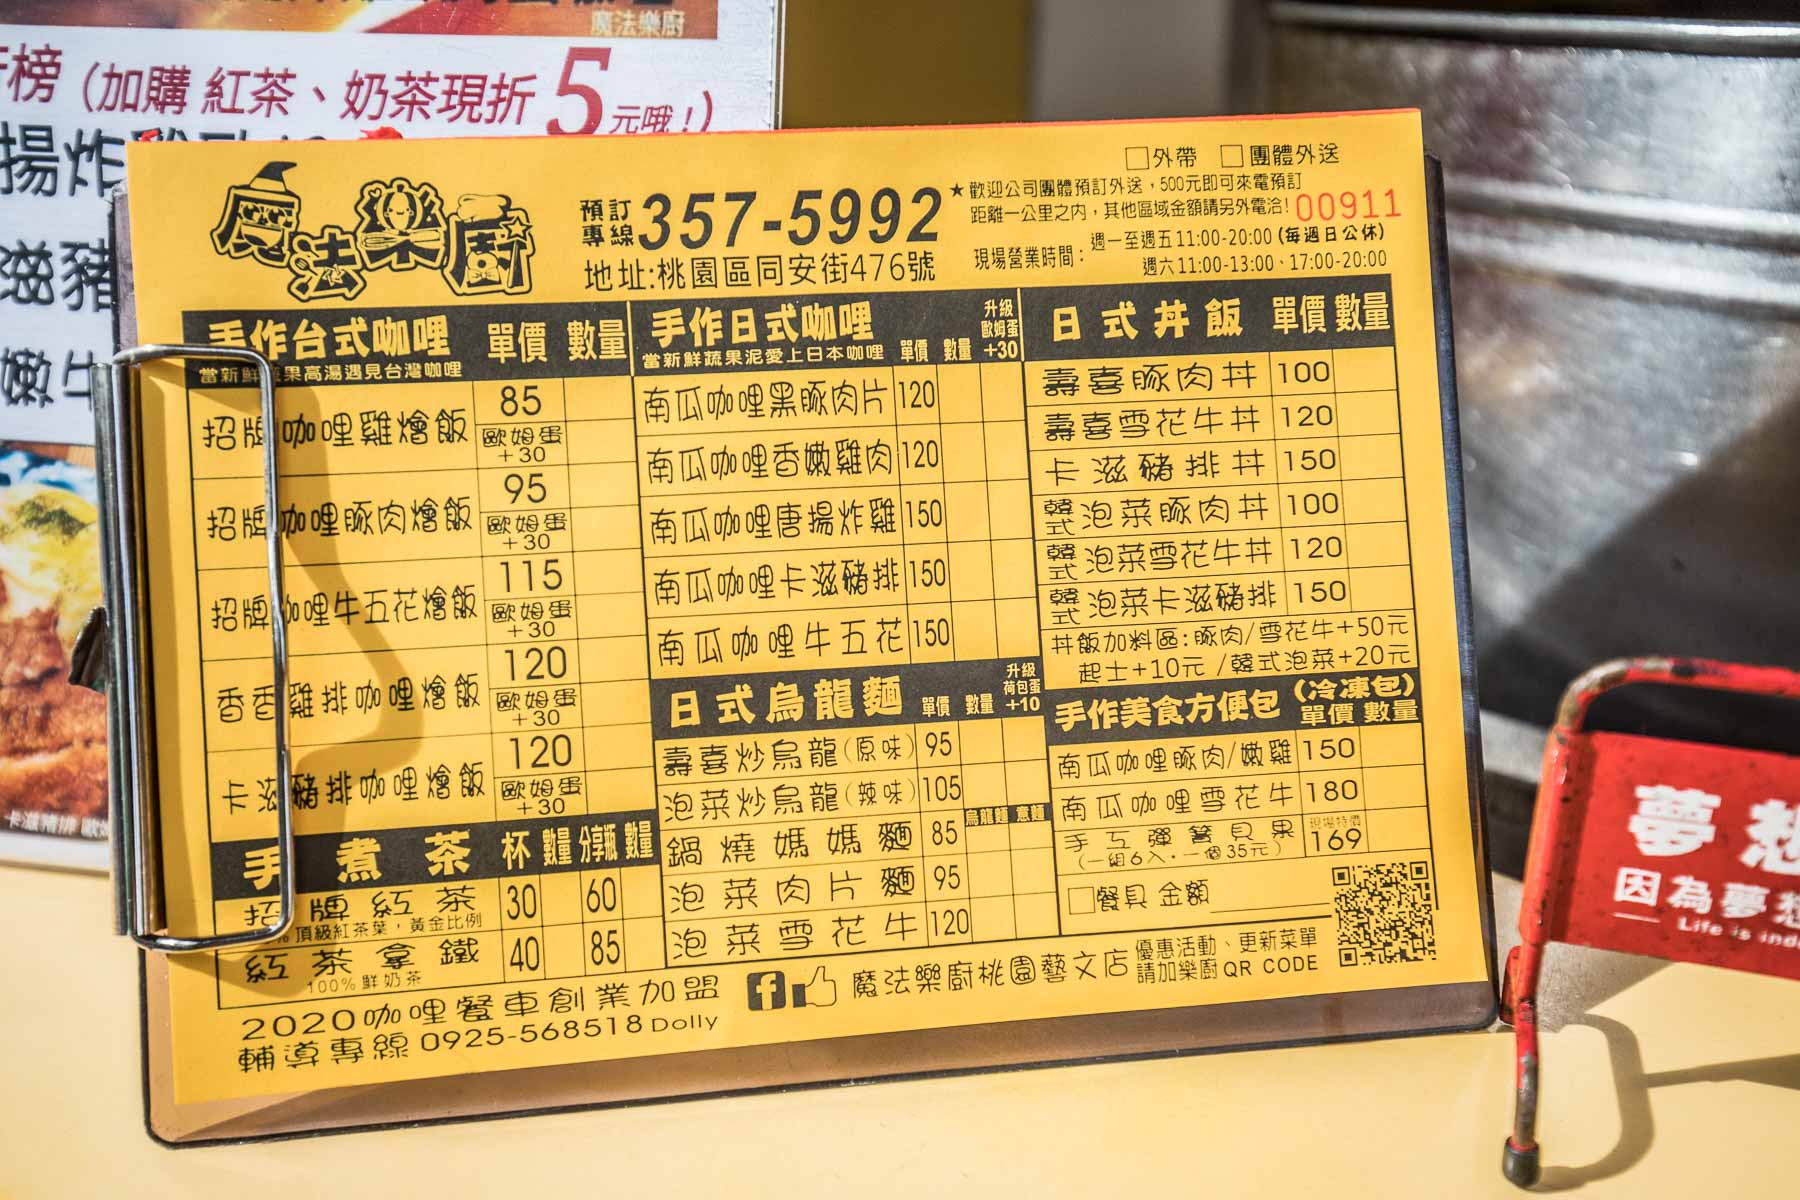 魔法樂廚
榜 (加購 紅茶、奶茶現折 5元哦!)
揚炸
滋豬
嫩牛
魔法樂廚
預訂專線 357-5992
地址:桃園區同安街476號
□外帶 □團體外送
★歡迎公司團體預訂外送，500元即可來電預訂
距離一公里之內，其他區域金額請另外電洽!
00911
現場營業時間：週一至週五11:00-20:00(每週日公休)
週六11:00-13:00、17:00-20:00
手作台式咖哩 單價 數量
當新鮮蔬果高湯遇見台灣咖哩
招牌咖哩雞燴飯 85
歐姆蛋+30
招牌咖哩豚肉燴飯 95
歐姆蛋+30
招牌咖哩牛五花燴飯 115
歐姆蛋+30
香香雞排咖哩燴飯 120
歐姆蛋+30
卡滋豬排咖哩燴飯 120
歐姆蛋+30
手煮茶 杯 數量 分享瓶 數量
招牌紅茶 30 60
頂級紅茶葉，黃金比例
紅茶拿鐵 40 85
100%鮮奶茶
手作日式咖哩 單價 數量 升級歐姆蛋+30
當新鮮蔬果泥愛上日本咖哩
南瓜咖哩黑豚肉片 120
南瓜咖哩香嫩雞肉 120
南瓜咖哩唐揚炸雞 150
南瓜咖哩卡滋豬排 150
南瓜咖哩牛五花 150
日式烏龍麵 單價 數量 升級荷包蛋+10
壽喜炒烏龍(原味) 95
泡菜炒烏龍(辣味) 105
烏龍麵 意麵
鍋燒媽媽麵 85
泡菜肉片麵 95
泡菜雪花牛 120
日式丼飯 單價 數量
壽喜豚肉丼 100
壽喜雪花牛丼 120
卡滋豬排丼 150
韓式泡菜豚肉丼 100
韓式泡菜雪花牛丼 120
韓式泡菜卡滋豬排 150
丼飯加料區:豚肉/雪花牛+50元
起士+10元 /韓式泡菜+20元
手作美食方便包 (冷凍包)
單價 數量
南瓜咖哩豚肉/嫩雞 150
南瓜咖哩雪花牛 180
手工彈簧貝果 現場特價 169
(一組6入．一個35元)
□餐具 金額
2020咖哩餐車創業加盟
輔導專線 0925-568518 Dolly
魔法樂廚桃園藝文店
優惠活動、更新菜單
請加樂廚 QR CODE
卡滋豬排
夢想
因為夢想
Life is